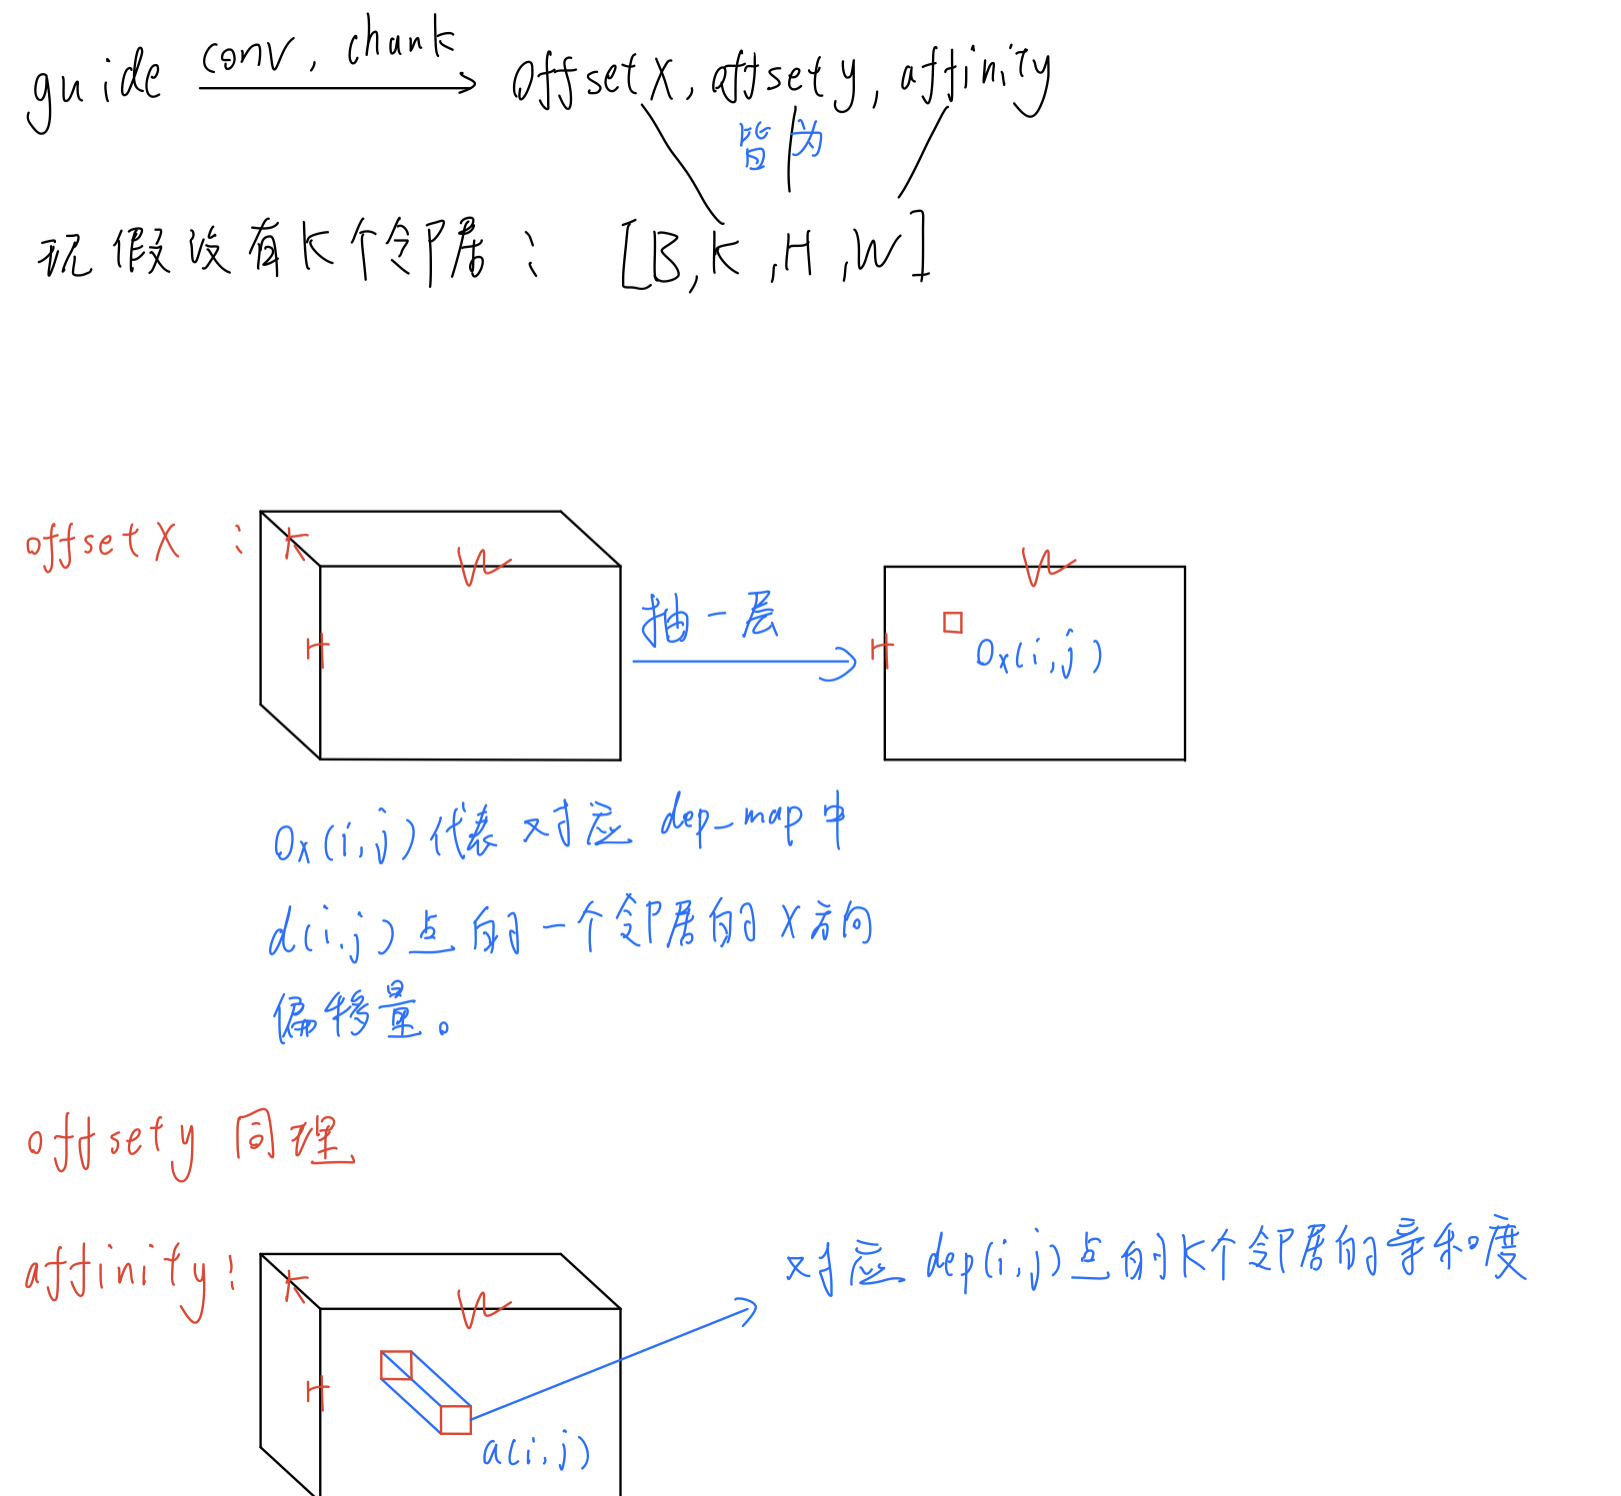 guide conv, chank offsetX, offsety, affinity
皆为
现假设有K个邻居： [B,K,H,W]
offsetX：
K
W
H
抽一层
W
H
Ox(i,j)
Ox(i,j)代表对应dep_map中
d(i.j)点的一个邻居的X方向
偏移量。
offsety 同理
affinity：
K
W
H
a(i,j)
对应dep(i,j)点的K个邻居的亲和度